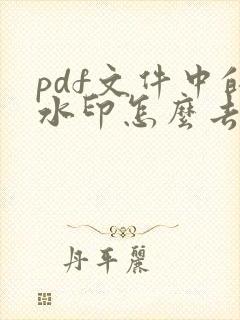 pdf文件中的
水印怎麼去
丹平麗